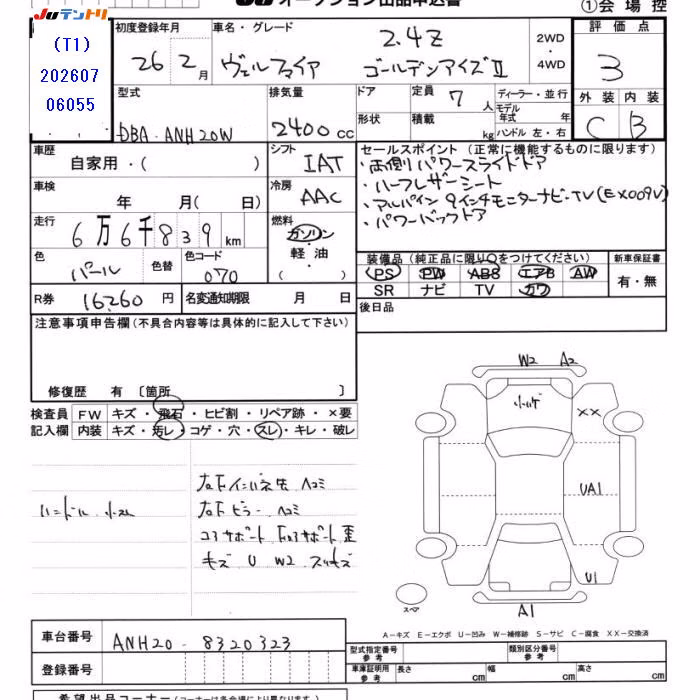 JUテントリ
オークション出品申込書
①会場控
(T1)
202607
06055
初度登録年月
26 2月
車名・グレード
2.4Z
ヴェルファイア ゴールデンアイズⅡ
2WD
・
4WD
評価点
3
外装 内装
C B
型式
DBA-ANH20W
排気量
2400cc
ドア
形状
定員 7人
積載 kg
ディーラー・並行
モデル
年式 年
ハンドル 左・右
車歴
自家用・( )
シフト
IAT
セールスポイント(正常に機能するものに限ります)
・両側パワースライドドア
・ハーフレザーシート
・アルパイン 9インチモニターナビ・TV(EX009V)
・パワーバックドア
車検
年 月( 日)
冷房
AAC
走行
6万6千839km
燃料
ガソリン
・
軽油
・
( )
色
パール
色替
色コード
070
装備品(純正品に限り○をつけてください)
PS PW ABS エアB AW
SR ナビ TV カワ
新車保証書
有・無
R券
16260円
名変通知期限 月 日
後日品
注意事項申告欄(不具合内容等は具体的に記入して下さい)
修復歴 有〔箇所 〕
検査員
記入欄
FW キズ・飛石・ヒビ割・リペア跡・×要
内装 キズ・汚レ・コゲ・穴・スレ・キレ・破レ
ハンドル 小スレ
右下インパネ先 ヘコミ
右下ピラー ヘコミ
コアサポート 下コアサポート歪
キズ U W2 スリキズ
W2 A2
XX
UA1
U1
A1
スペア
A―キズ E―エクボ U―凹み W―補修跡 S―サビ C―腐食 XX―交換済
車台番号
ANH20-8320323
登録番号
型式指定番号
参考
類別区分番号
参考
車庫証明用
参考
長さ cm 幅 cm 高さ cm
希望出品コーナー(コーナーは各会場により異なります)